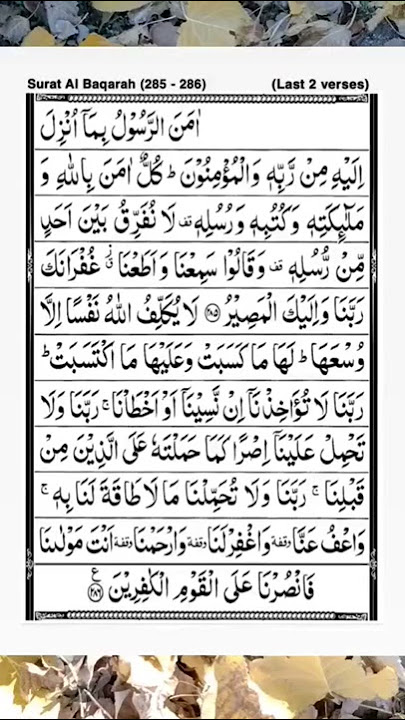 Surat Al Baqarah (285 - 286) (Last 2 verses)
اٰمَنَ الرَّسُوْلُ بِمَاۤ اُنْزِلَ
اِلَيْهِ مِنْ رَّبِّهٖ وَالْمُؤْمِنُوْنَ ؕ كُلٌّ اٰمَنَ بِاللّٰهِ وَ
مَلٰٓئِكَتِهٖ وَكُتُبِهٖ وَرُسُلِهٖ قف لَا نُفَرِّقُ بَيْنَ اَحَدٍ
مِّنْ رُّسُلِهٖ قف وَقَالُوْا سَمِعْنَا وَاَطَعْنَا ؗ غُفْرَانَكَ
رَبَّنَا وَاِلَيْكَ الْمَصِيْرُ ۝۲۸۵ لَا يُكَلِّفُ اللّٰهُ نَفْسًا اِلَّا
وُسْعَهَا ؕ لَهَا مَا كَسَبَتْ وَعَلَيْهَا مَا اكْتَسَبَتْ ؕ
رَبَّنَا لَا تُؤَاخِذْنَاۤ اِنْ نَّسِيْنَاۤ اَوْ اَخْطَاْنَا ۚ رَبَّنَا وَلَا
تَحْمِلْ عَلَيْنَاۤ اِصْرًا كَمَا حَمَلْتَهٗ عَلَى الَّذِيْنَ مِنْ
قَبْلِنَا ۚ رَبَّنَا وَلَا تُحَمِّلْنَا مَا لَا طَاقَةَ لَنَا بِهٖ ۚ
وَاعْفُ عَنَّا وقفة وَاغْفِرْ لَنَا وقفة وَارْحَمْنَا وقفة اَنْتَ مَوْلٰىنَا
فَانْصُرْنَا عَلَى الْقَوْمِ الْكٰفِرِيْنَ ۝۲۸۶ ع